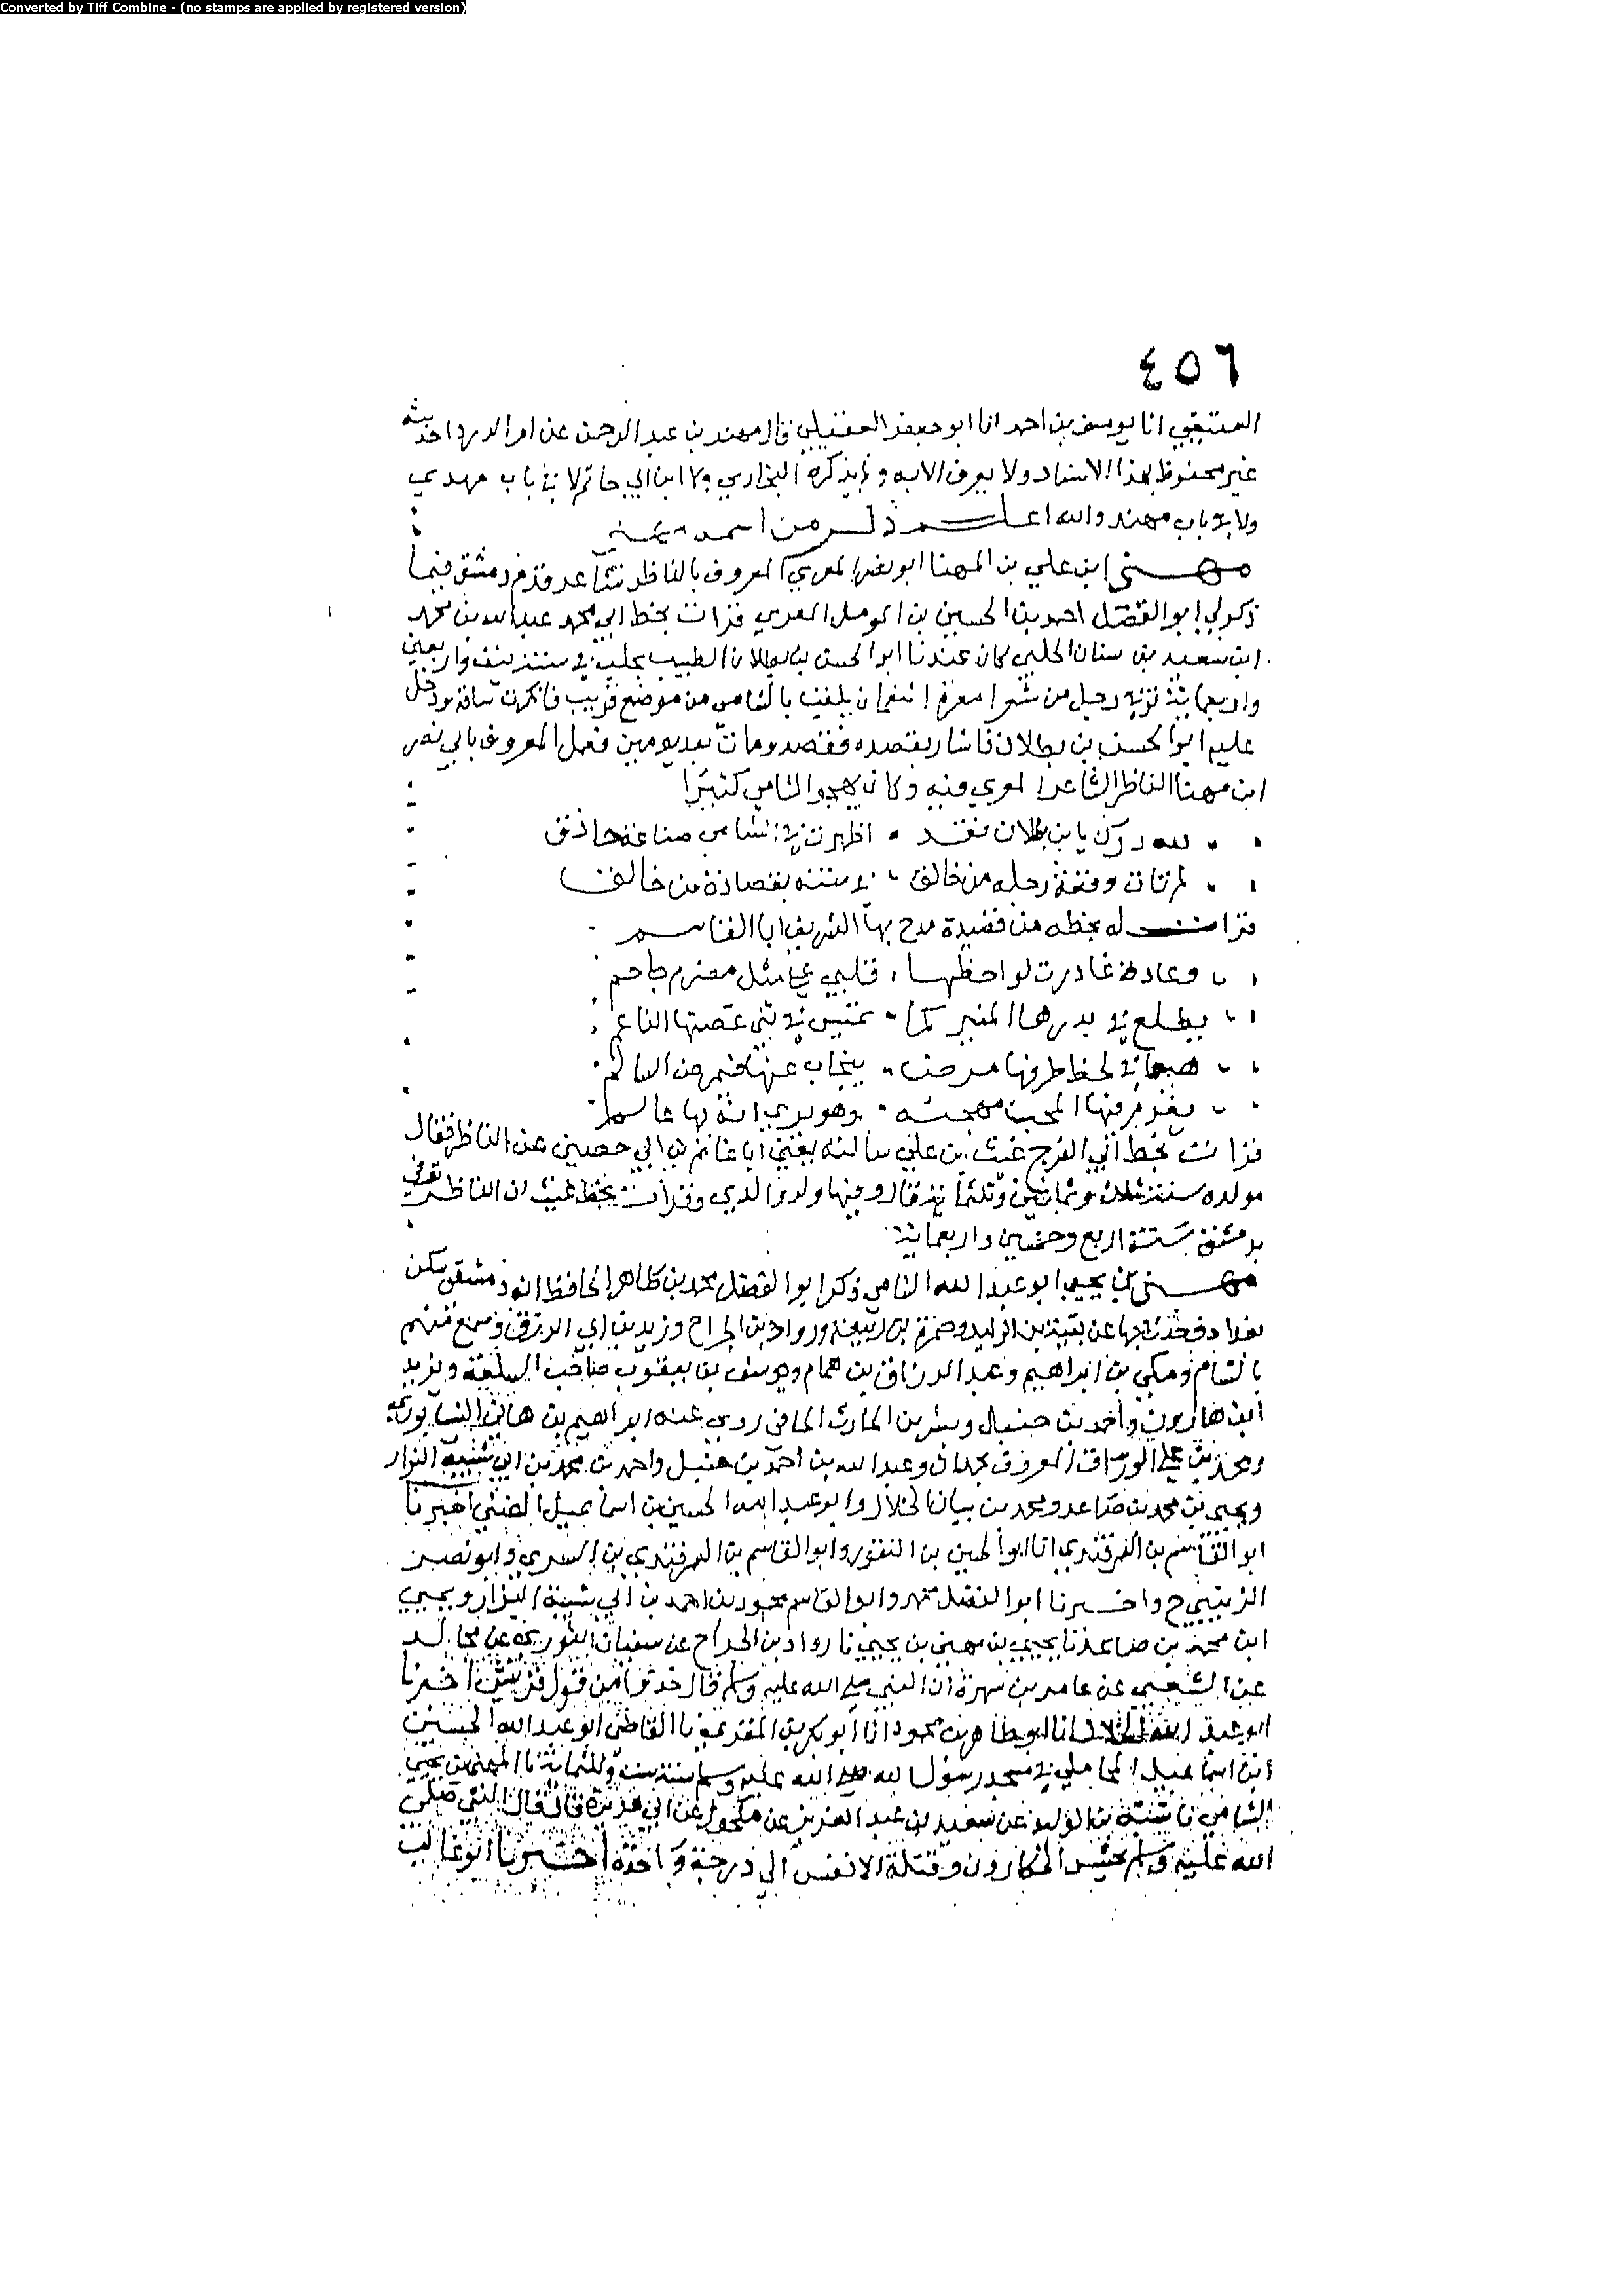 Converted by Tiff Combine - (no stamps are applied by registered version)
٤٥٦
العتيقي انا يوسف بن احمد انا ابو جعفر العقيلي قال مهند بن عبد الرحمن عن ام الدرداء حديثه
غير محفوظ بهذا الاسناد ولا يعرف الا به ولم يذكره البخاري ولا ابن ابي حاتم لا في باب مهدي
ولا في باب مهند والله اعلم ذكر من اسمه مهنى
مهنى ابن علي بن المهنا ابو نصر المعري المعروف بالناظر شاعر قدم دمشق فيما
ذكر لي ابو الفضل احمد بن الحسين بن المومل المعري قرات بخط ابي محمد عبد الله بن محمد
ابن سعيد بن سنان الحلبي كان عندنا ابو الحسن بن بطلان الطبيب بحلب في سنة نيف واربعين
واربعمائة رجل من شعرا معرة النعمان يلقب بالشامي من موضع قريب فانكرت ساقه ودخل
عليه ابو الحسن بن بطلان فاشار بفصده ففصد ومات بعد يومين فعمل المعروف بابي نصر
ابن مهنا الناظر الشاعر المعري فيه وكان يهجو الشامي كثيرا
لله درك يا ابن بطلان فقد اظهرت في الشامي صناعة حاذق
قرات له بخطه من قصيدة مدح بها الشريف ابا القاسم
وغادة غادرت لواحظها قلبي على مثل مضرم جاحم
يطلع في بدرها المنير كما تميس في ثنى غصنها الناعم
وهو يرى انه بها عالم
قرات بخط ابي الفرج غيث بن علي سالته يعني ابا غانم بن ابي حصين عن الناظر فقال
مولده سنة ثلاث وثمانين وثلثمائة قال وفيها ولد والدي وقرات بخط غيث ان الناظر توفي
بدمشق سنة اربع وخمسين واربعمائة
مهنى بن يحيى ابو عبد الله الشامي ذكر ابو الفضل محمد بن طاهر الحافظ انه دمشقي سكن
بغداد فحدث بها عن بقية بن الوليد وضمرة بن ربيعة ورواد بن الجراح وزيد بن ابي الزرقا وسمع منهم
بالشام ومكي بن ابراهيم وعبد الرزاق بن همام ويوسف بن يعقوب صاحب السلعة ويزيد
ابن هارون واحمد بن حنبل وبشر بن الحارث الحافي روى عنه ابراهيم بن هاني النيسابوري
ومحمد بن علي الوراق المعروف بحمدان وعبد الله بن احمد بن حنبل واحمد بن محمد بن ابي شيبة البزار
ويحيى بن محمد بن صاعد ومحمد بن بيان الخلال وابو عبد الله الحسين بن اسماعيل الضبي اخبرنا
ابو القاسم بن السمرقندي انا ابو الحسين بن النقور وابو القاسم بن البسري وابو نصر
الزينبي ح واخبرنا ابو الفضل وابو القاسم محمود بن احمد بن ابي شيبة البزار ويحيى
ابن محمد بن صاعد نا يحيى بن مهنى بن يحيى نا رواد بن الجراح عن سفيان الثوري عن مجالد
عن الشعبي عن عامر بن شهرة ان النبي صلى الله عليه وسلم قال خذوا من قول قريش اخبرنا
ابو عبد الله الخلال انا ابو طاهر بن محمود انا ابو بكر بن المقرئ نا القاضي ابو عبد الله الحسين
ابن اسماعيل المحاملي في مسجد رسول الله صلى الله عليه وسلم سنة ست وثلثمائة نا المهنى بن يحيى
الشامي نا بقية بن الوليد عن سعيد بن عبد العزيز عن مكحول عن ابي هريرة قال قال النبي صلى
الله عليه وسلم يحشر الحكارون وقتلة الانفس الى درجة واحدة اخبرنا ابو غالب